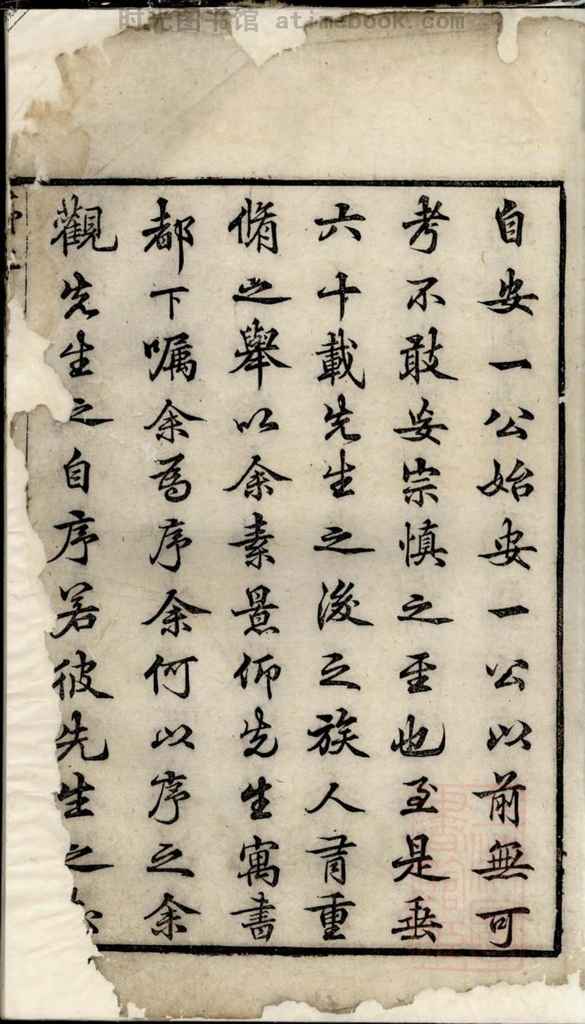 时光图书馆 atimebook.com
自安一公始安一公以前無可
考不敢妄宗慎之至也至是垂
六十載先生之後之族人有重
脩之舉以余素景仰先生寓書
都下嘱余為序余何以序之余
觀先生之自序若彼先生之